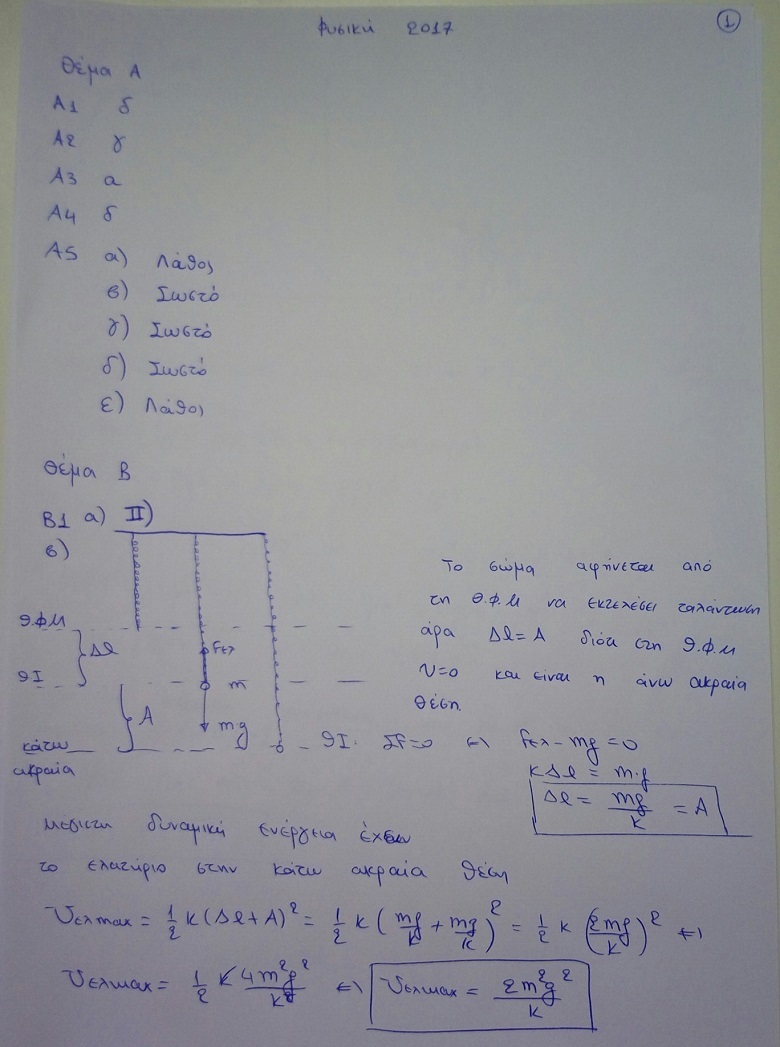 Φυσική 2017
1
Θέμα Α
Α1 δ
Α2 γ
Α3 α
Α4 δ
Α5 α) Λάθος
β) Σωστό
γ) Σωστό
δ) Σωστό
ε) Λάθος
Θέμα Β
Β1 α) II)
β)
Το σώμα αφήνεται από
τη θ.φ.μ να εκτελέσει ταλάντωση
άρα Δl = A διότι στη θ.φ.μ
υ=0 και είναι η άνω ακραία
θέση.
θ.φ.μ
Δl
Fελ
θΙ
m
A
mg
κάτω
ακραία
θΙ. ΣF=0 ⇔ Fελ - mg = 0
KΔl = m.g
Δl = mg/k = A
Μέγιστη δυναμική ενέργεια έχουμε
το ελατήριο στην κάτω ακραία θέση
Uελmax = 1/2 k (Δl + A)² = 1/2 k (mg/k + mg/k)² = 1/2 k (2mg/k)² ⇔
Uελmax = 1/2 k 4m²g²/k² ⇔ Uελmax = 2m²g²/k